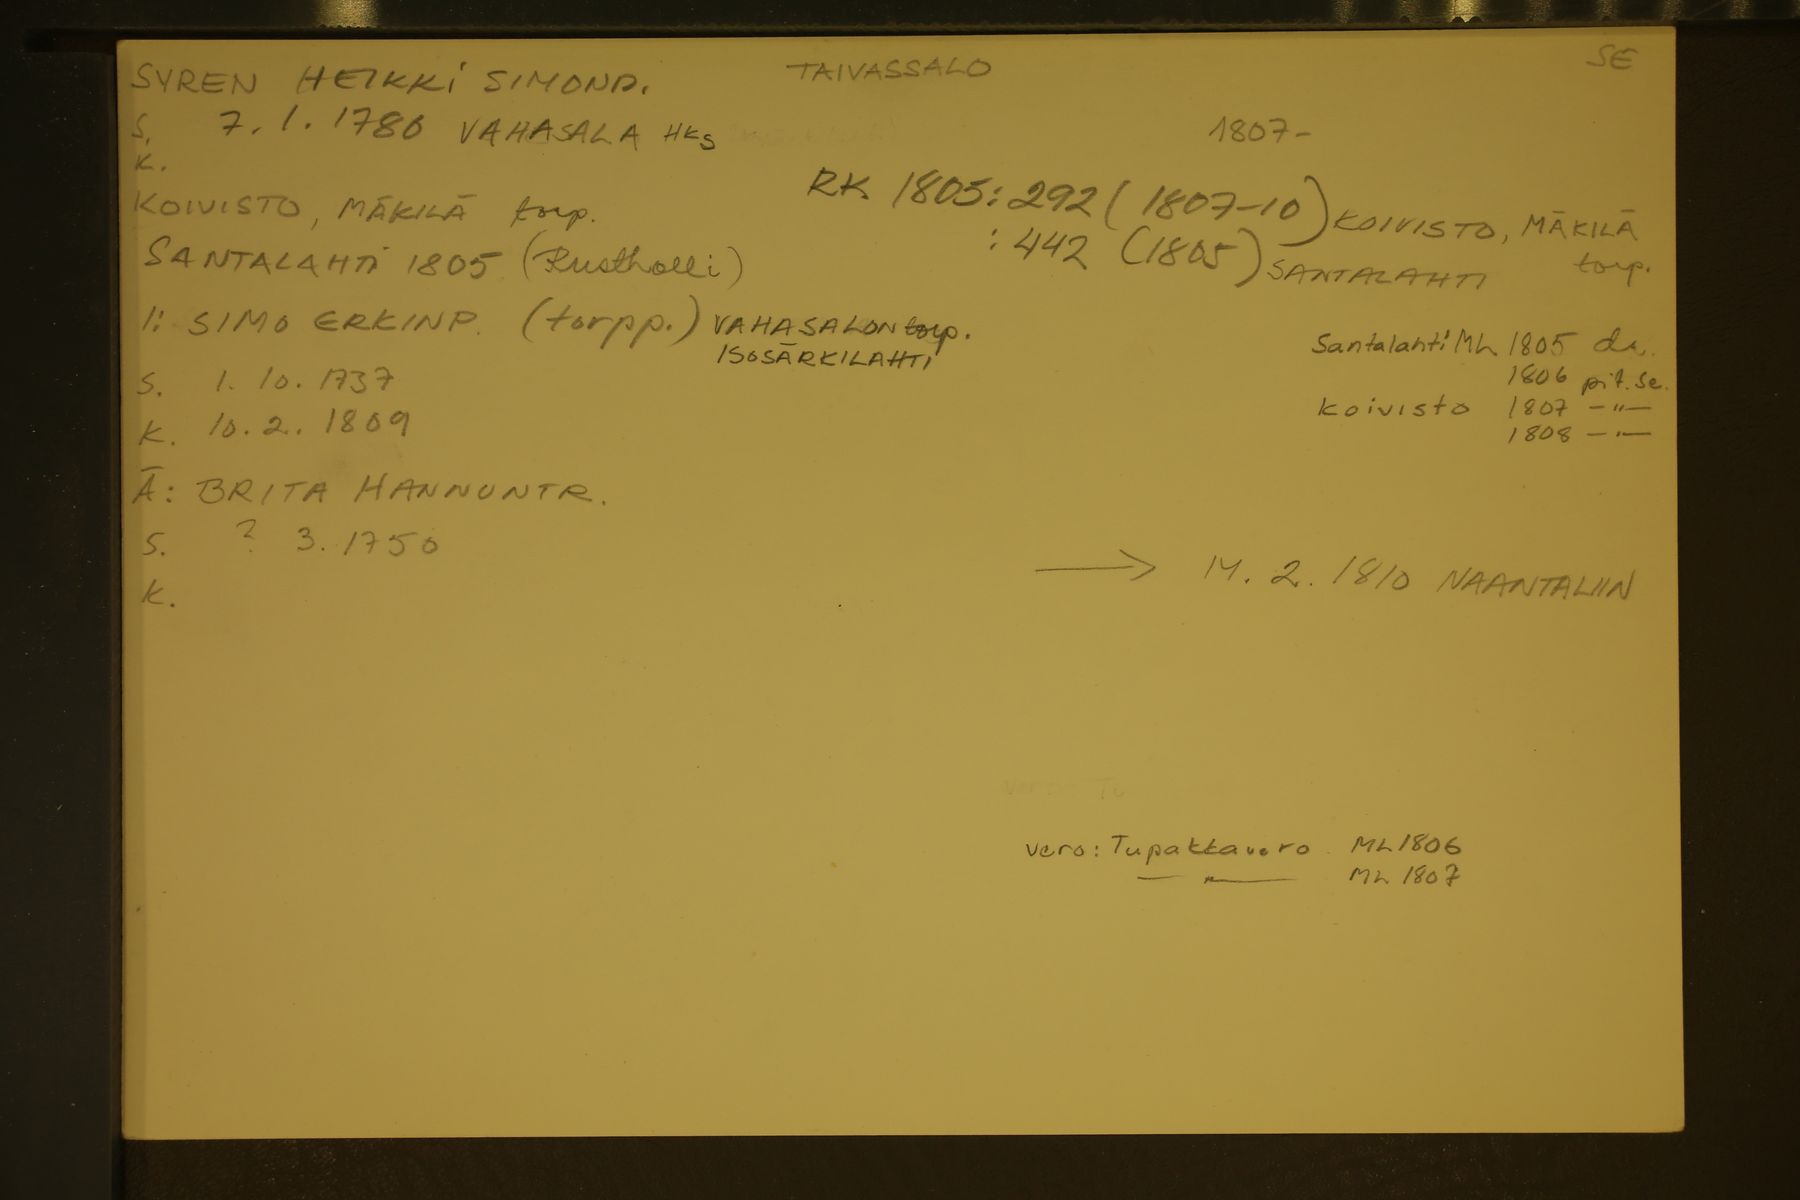 SE
SYREN HEIKKI SIMONP. TAIVASSALO
S. 7.1.1780 VAHASALA HKS 1807-
K.
RK 1805:292 (1807-10) KOIVISTO, MÄKILÄ torp.
KOIVISTO, MÄKILÄ torp.
:442 (1805) SANTALAHTI
SANTALAHTI 1805 (Rustholli)
I: SIMO ERKINP. (torpp.) VAHASALON torp.
ISOSÄRKILAHTI
Santalahti ML 1805 dr.
1806 pit. se.
S. 1.10.1737
Koivisto 1807 -"-
K. 10.2.1809
1808 -"-
Ä: BRITA HANNUNTR.
S. ? 3.1750
→ 14.2.1810 NAANTALIIN
K.
vero: Tupakkavero ML 1806
-"- ML 1807